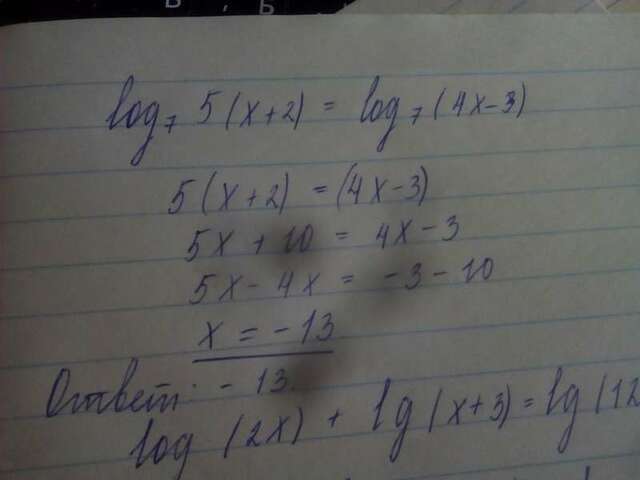 log₇ 5(x+2) = log₇ (4x-3)
5(x+2) = (4x-3)
5x + 10 = 4x - 3
5x - 4x = -3 - 10
x = -13
Ответ: -13.
log (2x) + lg (x+3) = lg (12